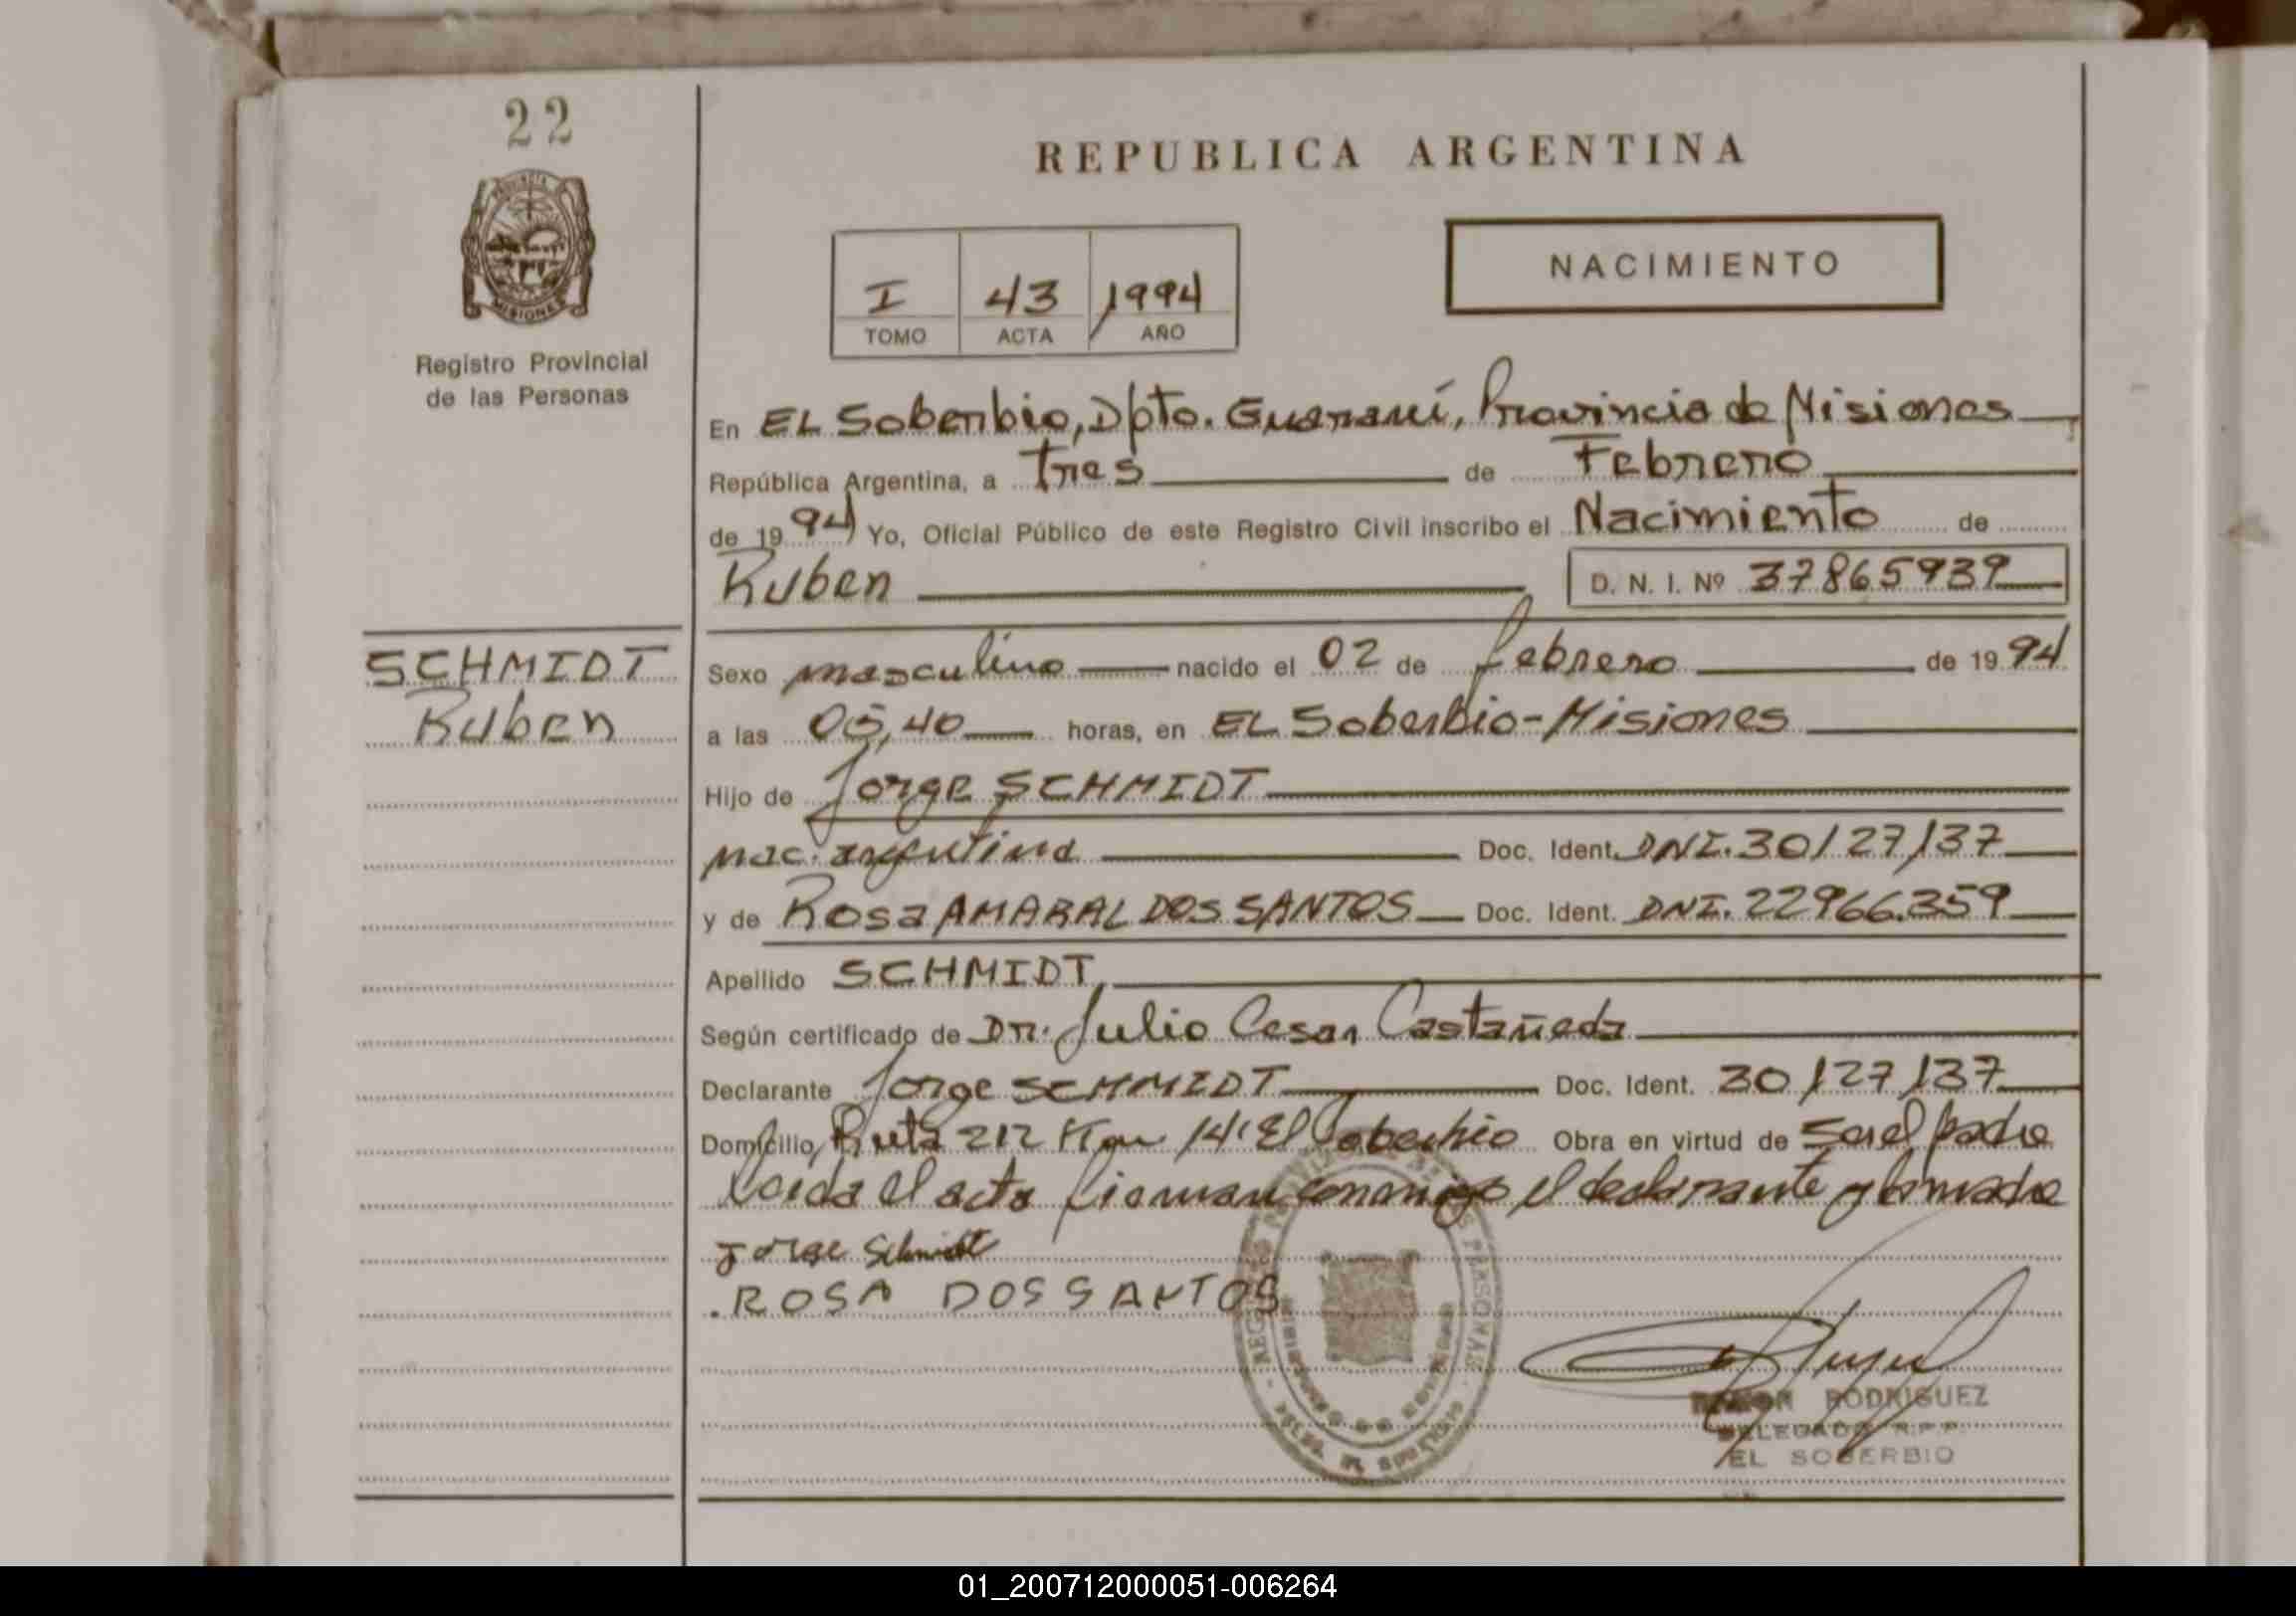 22
PROVINCIA
MISIONES
Registro Provincial
de las Personas
SCHMIDT
Ruben
REPUBLICA ARGENTINA
I 43 1994
TOMO ACTA AÑO
NACIMIENTO
En EL Soberbio, Dpto. Guaraní, Provincia de Misiones
República Argentina, a tres de Febrero
de 1994 Yo, Oficial Público de este Registro Civil inscribo el Nacimiento de
Ruben D. N. I. Nº 37865939
Sexo masculino nacido el 02 de febrero de 1994
a las 05,40 horas, en EL Soberbio-Misiones
Hijo de Jorge SCHMIDT
nac. argentina Doc. Ident. DNI. 30127137
y de Rosa AMARAL DOS SANTOS Doc. Ident. DNI. 22966.359
Apellido SCHMIDT
Según certificado de Dr. Julio Cesar Castañeda
Declarante Jorge SCHMIDT Doc. Ident. 30127137
Domicilio Ruta 212 Km 14 El Soberbio Obra en virtud de Ser el padre
Leida el acta firman conmigo el declarante y la madre
Jorge Schmidt
ROSA DOS SANTOS
RAMON RODRIGUEZ
DELEGADO R.P.P.
EL SOBERBIO
01_200712000051-006264